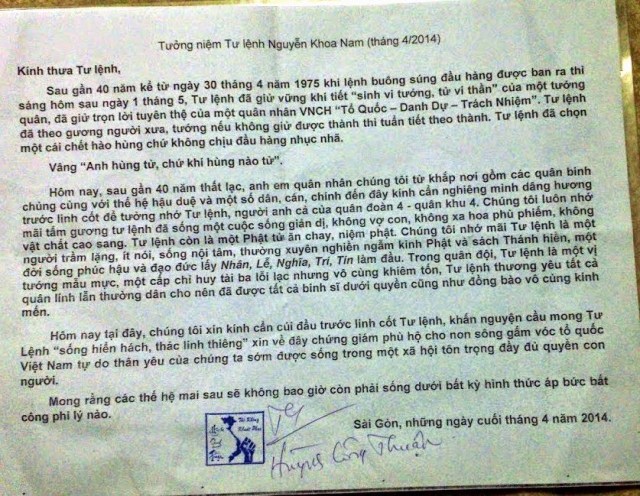 Tưởng niệm Tư lệnh Nguyễn Khoa Nam (tháng 4/2014)
Kính thưa Tư lệnh,
Sau gần 40 năm kể từ ngày 30 tháng 4 năm 1975 khi lệnh buông súng đầu hàng được ban ra thì
sáng hôm sau ngày 1 tháng 5, Tư lệnh đã giữ vững khí tiết “sinh vi tướng, tử vi thần” của một tướng
quân, đã giữ trọn lời tuyên thệ của một quân nhân VNCH “Tổ Quốc – Danh Dự – Trách Nhiệm”. Tư lệnh
đã theo gương người xưa, tướng nếu không giữ được thành thì tuẫn tiết theo thành. Tư lệnh đã chọn
một cái chết hào hùng chứ không chịu đầu hàng nhục nhã.
Vâng “Anh hùng tử, chứ khí hùng nào tử”.
Hôm nay, sau gần 40 năm thất lạc, anh em quân nhân chúng tôi từ khắp nơi gồm các quân binh
chủng cùng với thế hệ hậu duệ và một số dân, cán, chính đến đây kính cẩn nghiêng mình dâng hương
trước linh cốt để tưởng nhớ Tư lệnh, người anh cả của quân đoàn 4 - quân khu 4. Chúng tôi luôn nhớ
mãi tấm gương tư lệnh đã sống một cuộc sống giản dị, không vợ con, không xa hoa phù phiếm, không
vật chất cao sang. Tư lệnh còn là một Phật tử ăn chay, niệm phật. Chúng tôi nhớ mãi Tư lệnh là một
người trầm lặng, ít nói, sống nội tâm, thường xuyên nghiền ngẫm kinh Phật và sách Thánh hiền, một
đời sống phúc hậu và đạo đức lấy Nhân, Lễ, Nghĩa, Trí, Tín làm đầu. Trong quân đội, Tư lệnh là một vị
tướng mẫu mực, một cấp chỉ huy tài ba lỗi lạc nhưng vô cùng khiêm tốn, Tư lệnh thương yêu tất cả
quân lính lẫn thường dân cho nên đã được tất cả binh sĩ dưới quyền cũng như đồng bào vô cùng kính
mến.
Hôm nay tại đây, chúng tôi xin kính cẩn cúi đầu trước linh cốt Tư lệnh, khấn nguyện cầu mong Tư
Lệnh “sống hiển hách, thác linh thiêng” xin về đây chứng giám phù hộ cho non sông gấm vóc tổ quốc
Việt Nam tự do thân yêu của chúng ta sớm được sống trong một xã hội tôn trọng đầy đủ quyền con
người.
Mong rằng các thế hệ mai sau sẽ không bao giờ còn phải sống dưới bất kỳ hình thức áp bức bất
công phi lý nào.
Sài Gòn, những ngày cuối tháng 4 năm 2014.
Huỳnh Công Thuận